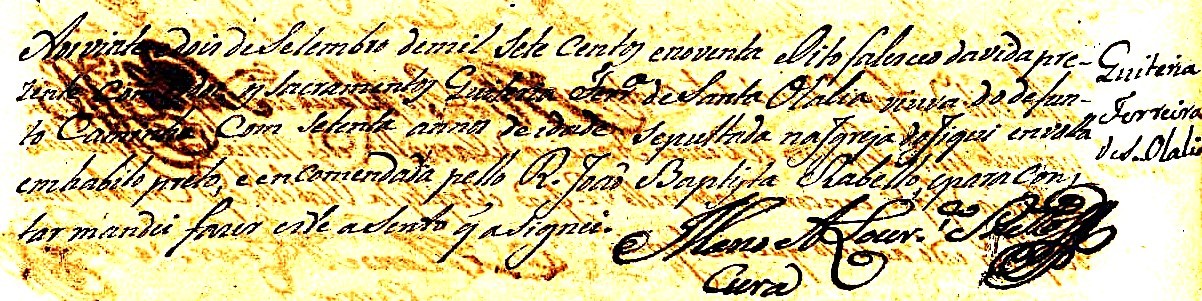 Aos vinte e dois de Setembro de mil sete centos e noventa e Oito faleceo da vida pre-
zente com todos os Sacramentos Guiteria Ferrª de Santa Olalia viuva do defun-
to Camanho, com setenta annos de idade sepultada na Igreja do Jiqui envolta
em habito preto, e encomendada pello R. João Baptista Rabello, e para con-
tar mandei fazer este asento q asignei.
Cura
Guiteria
Ferreira
de S. Olalia